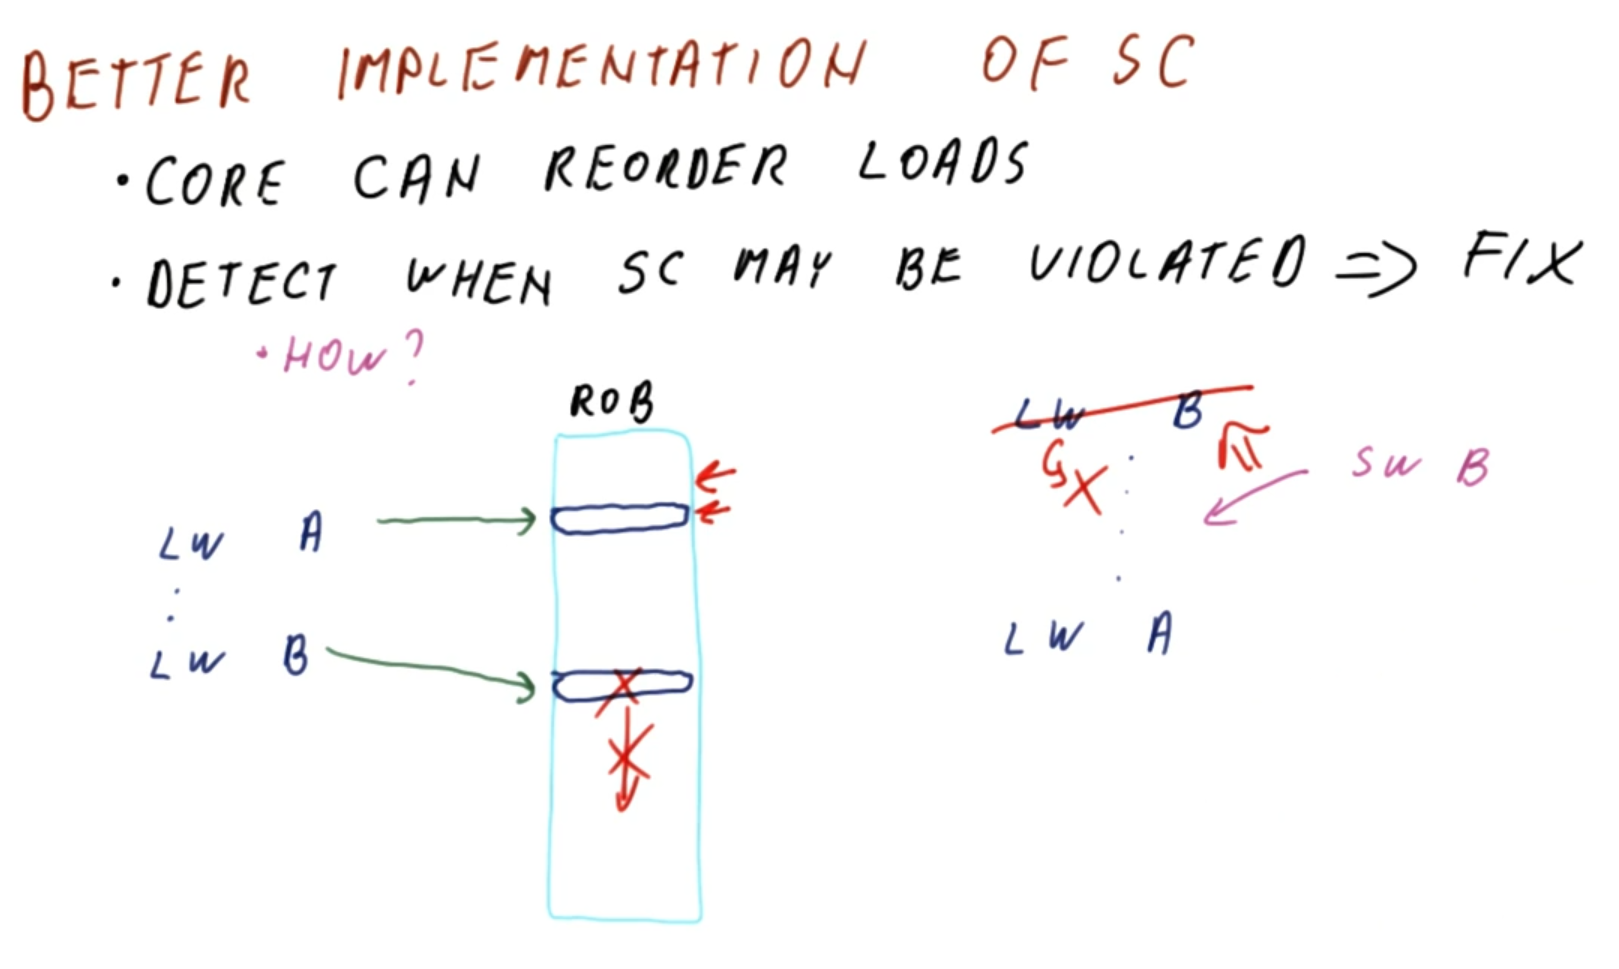 BETTER IMPLEMENTATION OF SC
• CORE CAN REORDER LOADS
• DETECT WHEN SC MAY BE VIOLATED => FIX
• HOW?
ROB
LW A
LW B
LW B
SW B
LW A